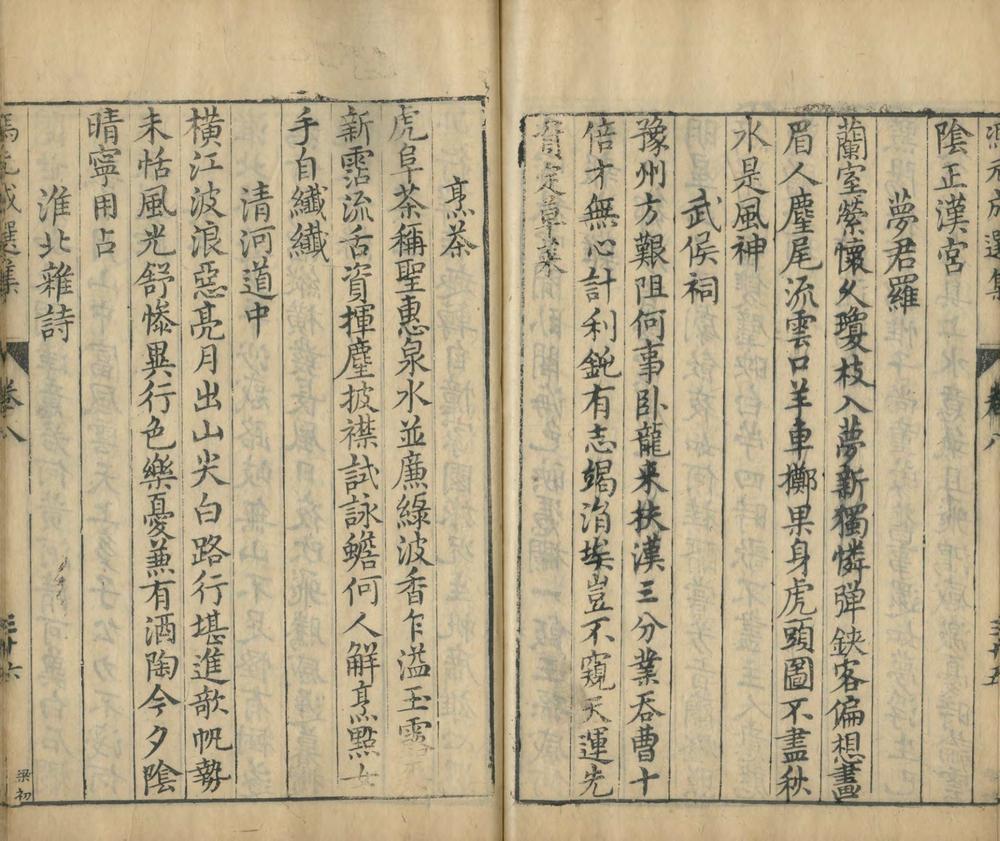 陰正漢宮
夢君羅
蘭室縈懷久瓊枝入夢新獨憐彈鋏客偏想畫
眉人塵尾流雲口羊車擲果身虎頭圖不盡秋
水是風神
武侯祠
豫州方艱阻何事卧龍来扶漢三分業吞曹十
倍才無心計利鈍有志竭涓埃豈不窺天運先
定草萊
烹茶
虎阜茶稱聖惠泉水並廉綠波香乍溢玉
新霑流舌資揮塵披襟試詠蟾何人解烹㸃
手自纖纖
清河道中
橫江波浪惡亮月出山尖白路行堪進欹帆勢
未恬風光舒慘異行色樂憂蒹有酒陶今夕陰
晴寧用占
淮北雜詩
選集 卷八
梁初